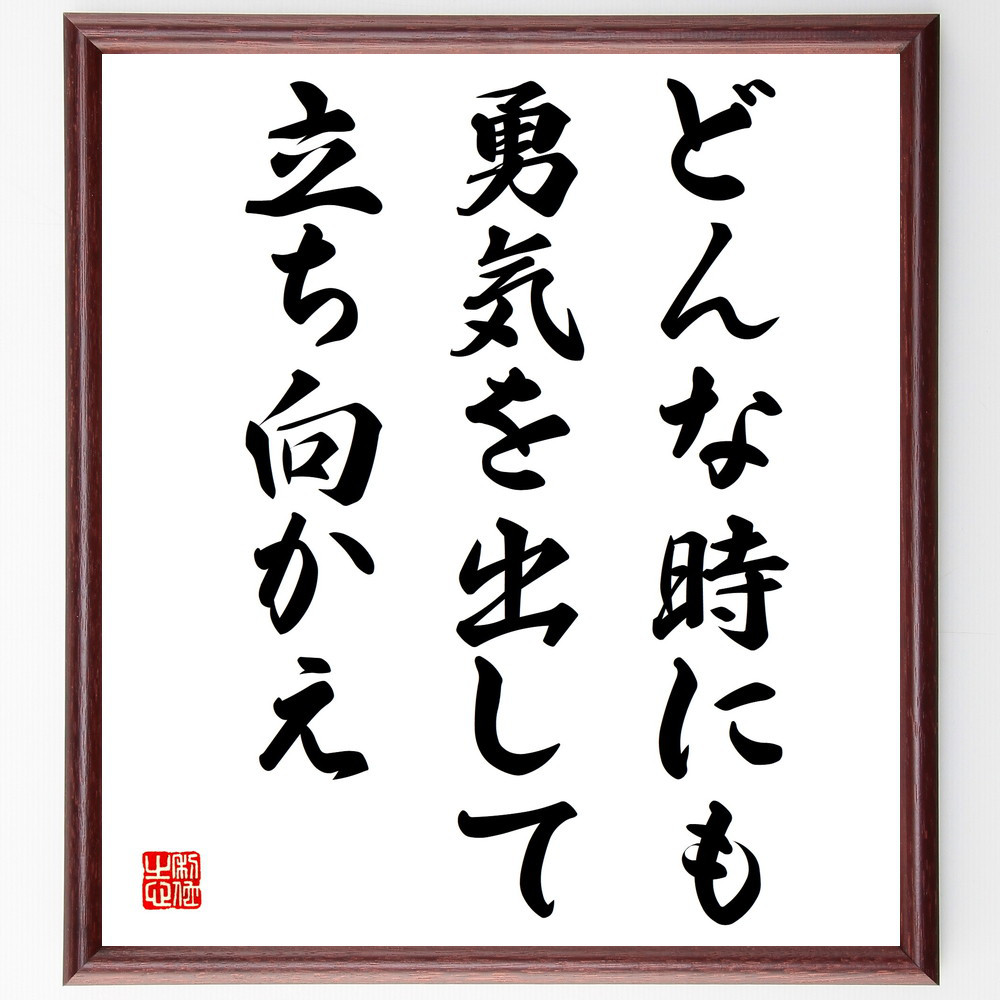 どんな時にも
勇気を出して
立ち向かえ